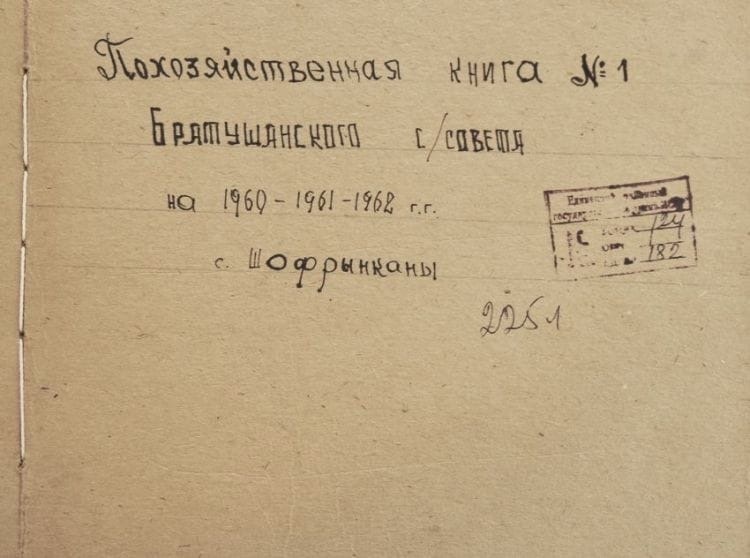 Похозяйственная книга № 1
Братушанского с/совета
на 1960 - 1961 - 1962 г.г.
с. Шофрынканы
124
182
225 л